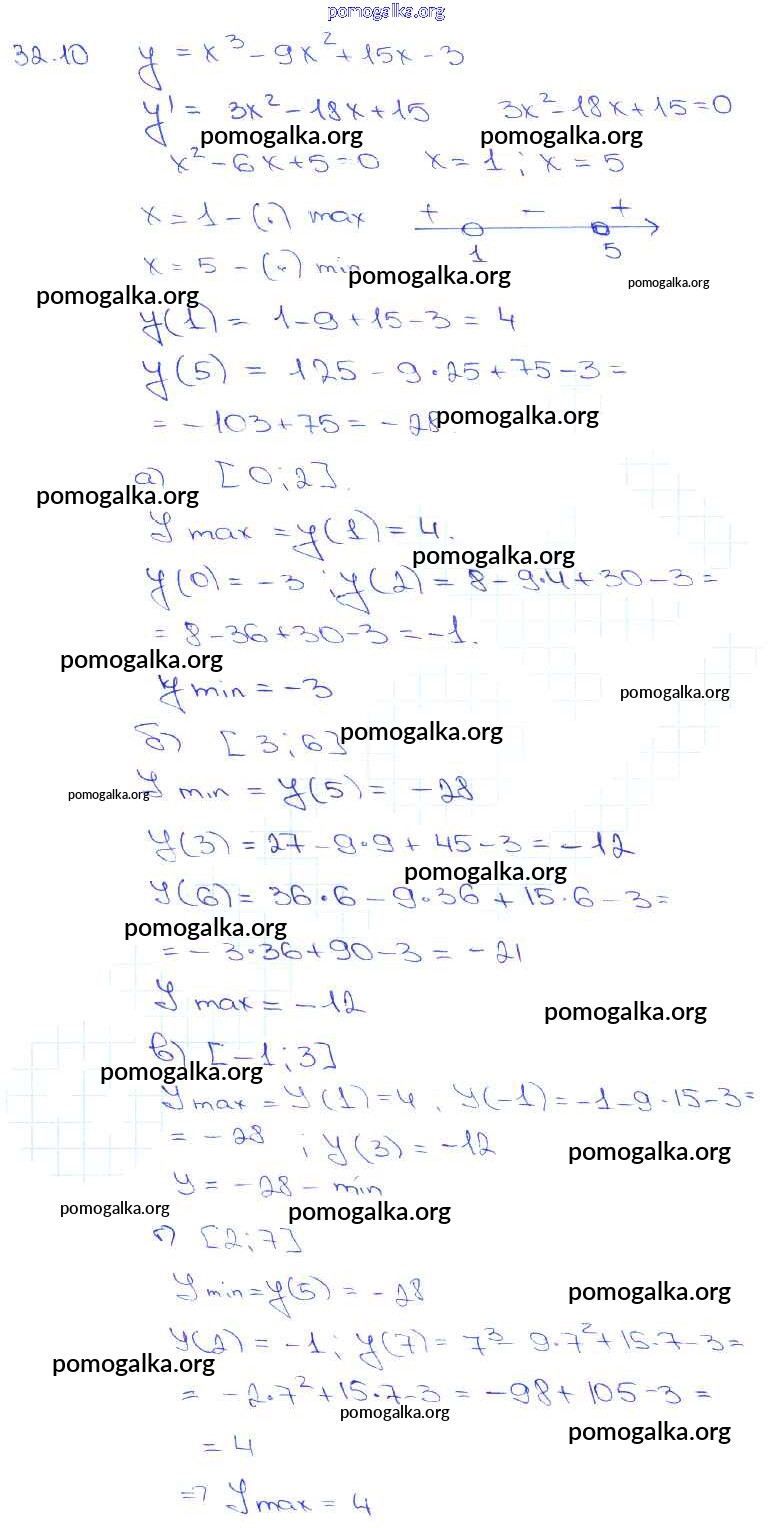 pomogalka.org
32.10 y = x³ - 9x² + 15x - 3
y' = 3x² - 18x + 15 3x² - 18x + 15 = 0
pomogalka.org pomogalka.org
x² - 6x + 5 = 0 x = 1 ; x = 5
x = 1 - (.) max + - +
1 5
x = 5 - (.) min
pomogalka.org pomogalka.org pomogalka.org
y(1) = 1 - 9 + 15 - 3 = 4
y(5) = 125 - 9·25 + 75 - 3 =
= -103 + 75 = -28.
pomogalka.org
а) [0;2].
pomogalka.org
y max = y(1) = 4.
pomogalka.org
y(0) = -3 ; y(2) = 8 - 9·4 + 30 - 3 =
= 8 - 36 + 30 - 3 = -1.
pomogalka.org
y min = -3
pomogalka.org
б) [3;6]
pomogalka.org
y min = y(5) = -28
pomogalka.org
y(3) = 27 - 9·9 + 45 - 3 = -12
pomogalka.org
y(6) = 36·6 - 9·36 + 15·6 - 3 =
pomogalka.org
= -3·36 + 90 - 3 = -21
y max = -12
pomogalka.org
в) [-1;3]
pomogalka.org
y max = y(1) = 4, y(-1) = -1 - 9 - 15 - 3 =
= -28 ; y(3) = -12
pomogalka.org
y = -28 - min
pomogalka.org pomogalka.org
г) [2;7]
y min = y(5) = -28
pomogalka.org
y(2) = -1 ; y(7) = 7³ - 9·7² + 15·7 - 3 =
pomogalka.org
= -2·7² + 15·7 - 3 = -98 + 105 - 3 =
pomogalka.org
pomogalka.org
= 4
=> y max = 4